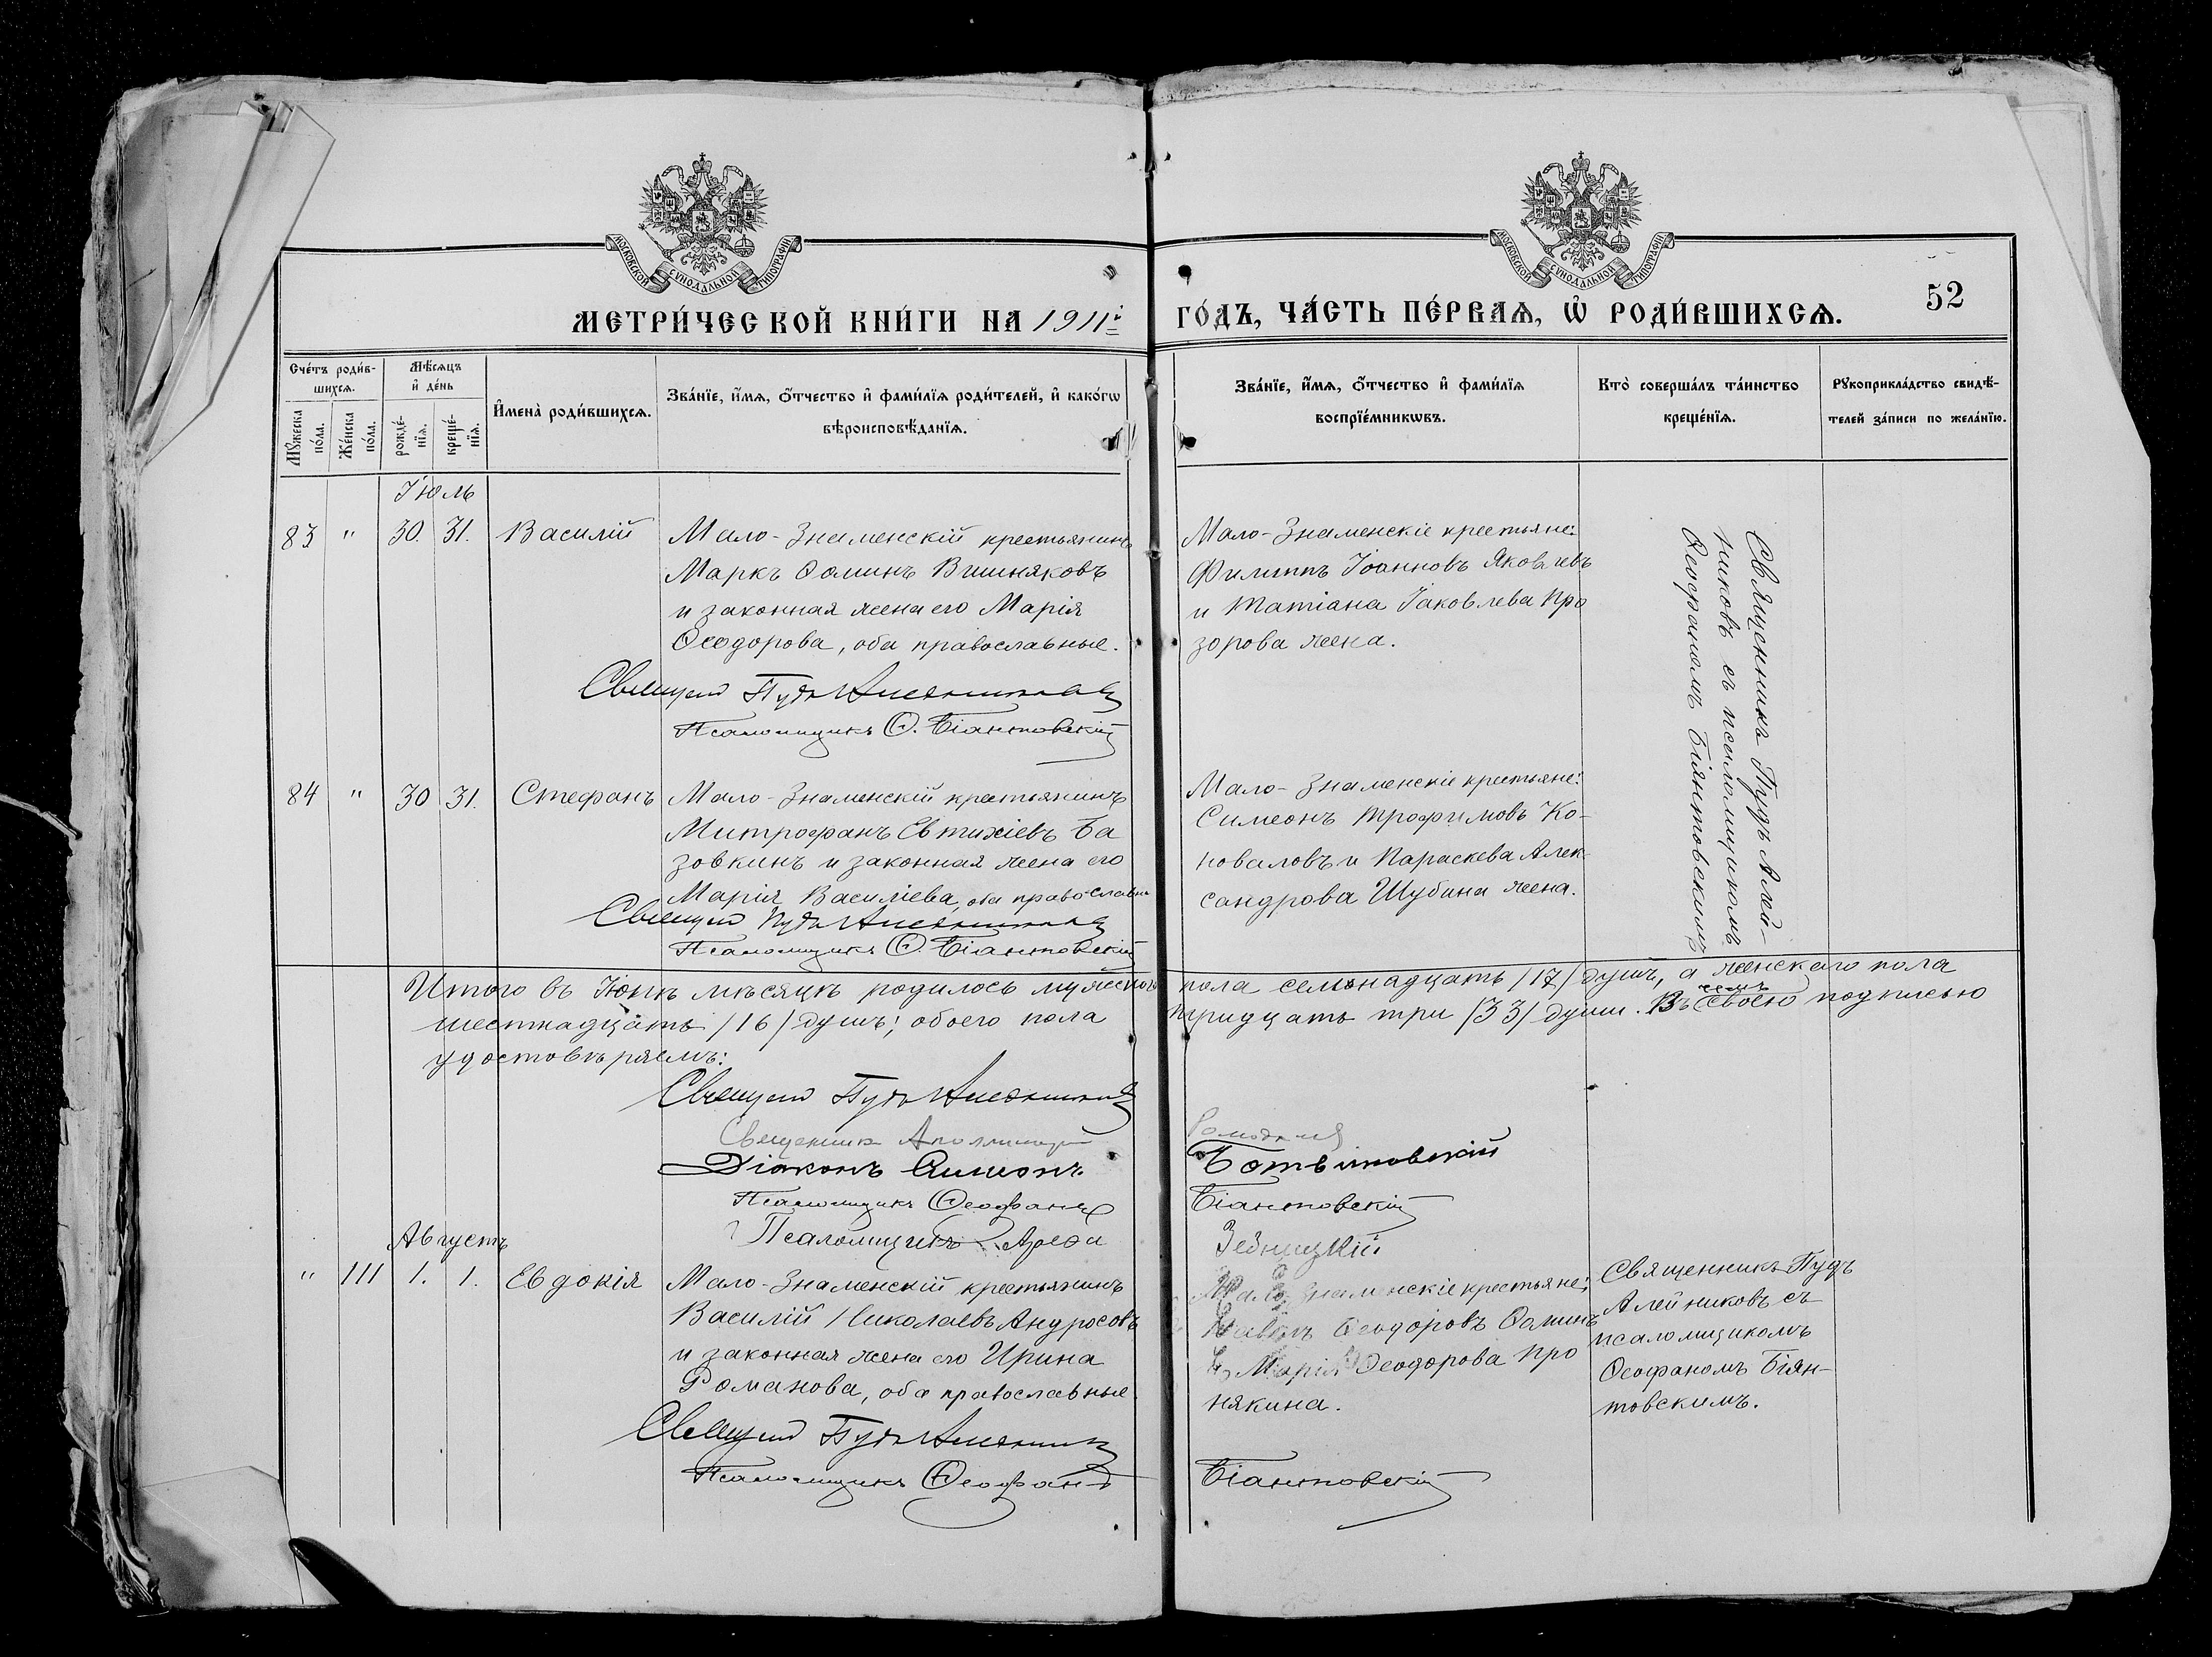 МОСКОВСКОЙ СУНОДАЛЬНОЙ ТИПОГРАФІИ
МОСКОВСКОЙ СУНОДАЛЬНОЙ ТИПОГРАФІИ
52
МЕТРИ́ЧЕСКОЙ КНИ́ГИ НА 1911й
ГО́ДЪ, ЧА́СТЬ ПЕ́РВАѦ, Ѡ҆ РОДИ́ВШИХСѦ.
Сче́тъ роди́в-
шихсѧ.
Мꙋ́жеска по́ла.
Же́нска по́ла.
Мѣ́сѧцъ
и҆ де́нь
рожде́-нїѧ.
креще́-нїѧ.
И҆мена̀ роди́вшихсѧ.
Зва́нїе, и҆́мѧ, ѻ҆́тчество и҆ фами́лїѧ роди́телей, и҆ како́гѡ
вѣроисповѣ́данїѧ.
Зва́нїе, и҆́мѧ, ѻ҆́тчество и҆ фами́лїѧ
воспрїе́мникѡвъ.
Кто̀ соверша́лъ та́инство
креще́нїѧ.
Рꙋкоприкла́дство свидѣ́-
телей за́писи по жела́нїю.
Іюль
83 " 30. 31. Василій
Мало-Знаменскій крестьянинъ
Маркъ Ѳоминъ Вишняковъ
и законная жена его Марія
Ѳеодорова, оба православные.
Священ Пудъ Алейниковъ
Псаломщикъ Ѳ. Біантовскій
Мало-Знаменскіе крестьяне:
Филиппъ Іоанновъ Яковлевъ
и Татіана Іаковлева Про
зорова жена.
Священникъ Пудъ Алей-
никовъ съ псаломщикомъ
Ѳеофаномъ Біянтовскимъ
84 " 30 31. Стефанъ
Мало-Знаменскій крестьянинъ
Митрофанъ Евтихіевъ Ба
зовкинъ и законная жена его
Марія Василіева, оба православн
Священ Пудъ Алейниковъ
Псаломщикъ Ѳ. Біантовскій
Мало-Знаменскіе крестьяне:
Симеонъ Трофимовъ Ко-
новаловъ и Параскева Алек-
сандрова Шубина жена.
Итого въ Іюлѣ мѣсяцѣ родилось мужеского пола семьнадцать /17/ душъ, а женскаго пола
шестнадцать /16/ душъ; обоего пола тридцать три /33/ души. Въ семъ своею подписью
удостовѣряемъ:
Священ Пудъ Алейниковъ
Священникъ
Діаконъ Симеонъ
Псаломщикъ Ѳеофанъ Біантовскій
Псаломщикъ
Августъ
" 111 1. 1. Евдокія
Мало-Знаменскій крестьянинъ
Василій Николаевъ Андросовъ
и законная жена его Ирина
Романова, оба православные.
Священ Пудъ Алейников
Псаломщикъ Ѳеофанъ Біантовскій
Мало-Знаменскіе крестьяне:
Павелъ Ѳеодоровъ Ѳоминъ
и Марія Ѳеодорова Про
някина.
Священникъ Пудъ
Алейниковъ съ
псаломщикомъ
Ѳеофаномъ Біян-
товскимъ.